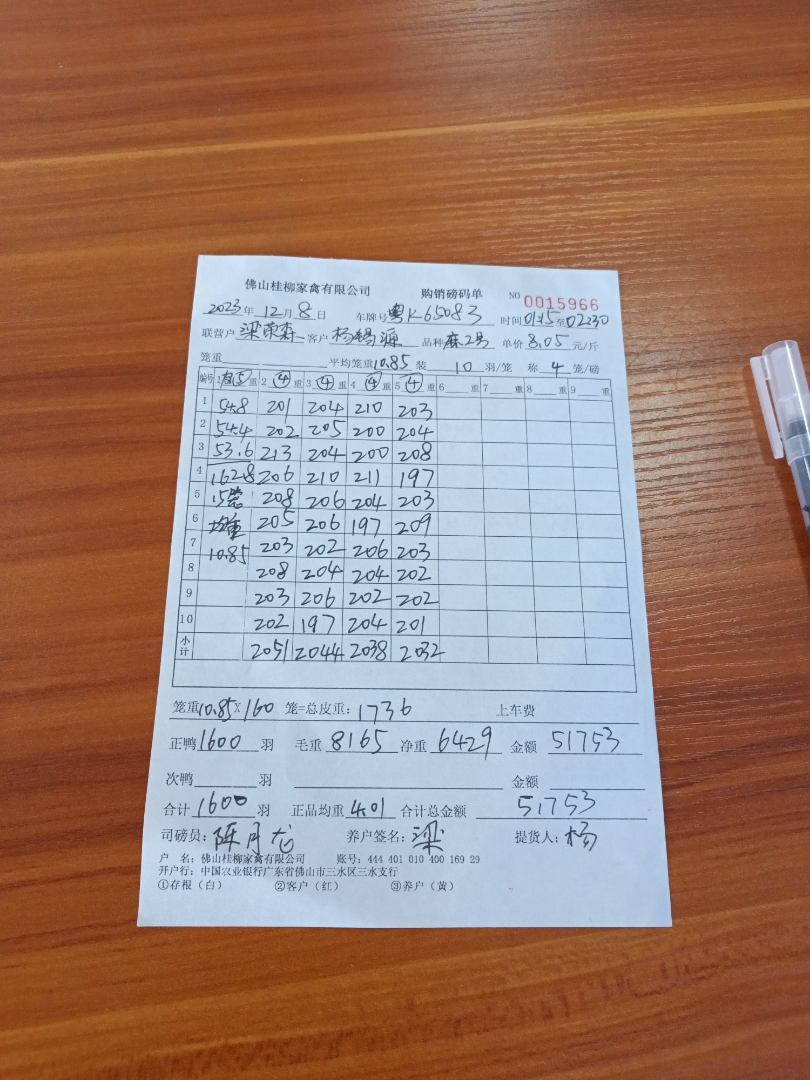 佛山桂柳家禽有限公司 购销磅码单 NO 0015966
2023年12月8日 车牌号粤K65083 时间01:15至02:30
联营户 梁荣森 客户 杨锡源 品种 麻2号 单价 8.05 元/斤
笼重 平均笼重10.85 装 10 羽/笼 称 4 笼/磅
编号 1 ⑤ 重 2 ④ 重 3 ④ 重 4 ④ 重 5 ④ 重 6 重 7 重 8 重 9 重
1 54.8 201 204 210 203
2 54.4 202 205 200 204
3 53.6 213 204 200 208
4 162.8 206 210 211 197
5 15笼 208 206 204 203
6 均重 205 206 197 209
7 10.85 203 202 206 203
8 208 204 204 202
9 203 206 202 202
10 202 197 204 201
小计 2051 2044 2038 2032
笼重10.85×160 笼=总皮重：1736 上车费
正鸭1600羽 毛重 8165 净重 6429 金额 51753
次鸭 羽 金额
合计 1600 羽 正品均重 4.01 合计总金额 51753
司磅员：陈月龙 养户签名：梁 提货人：杨
户 名：佛山桂柳家禽有限公司 账号：444 401 010 400 169 29
开户行：中国农业银行广东省佛山市三水区三水支行
①存根（白） ②客户（红） ③养户（黄）